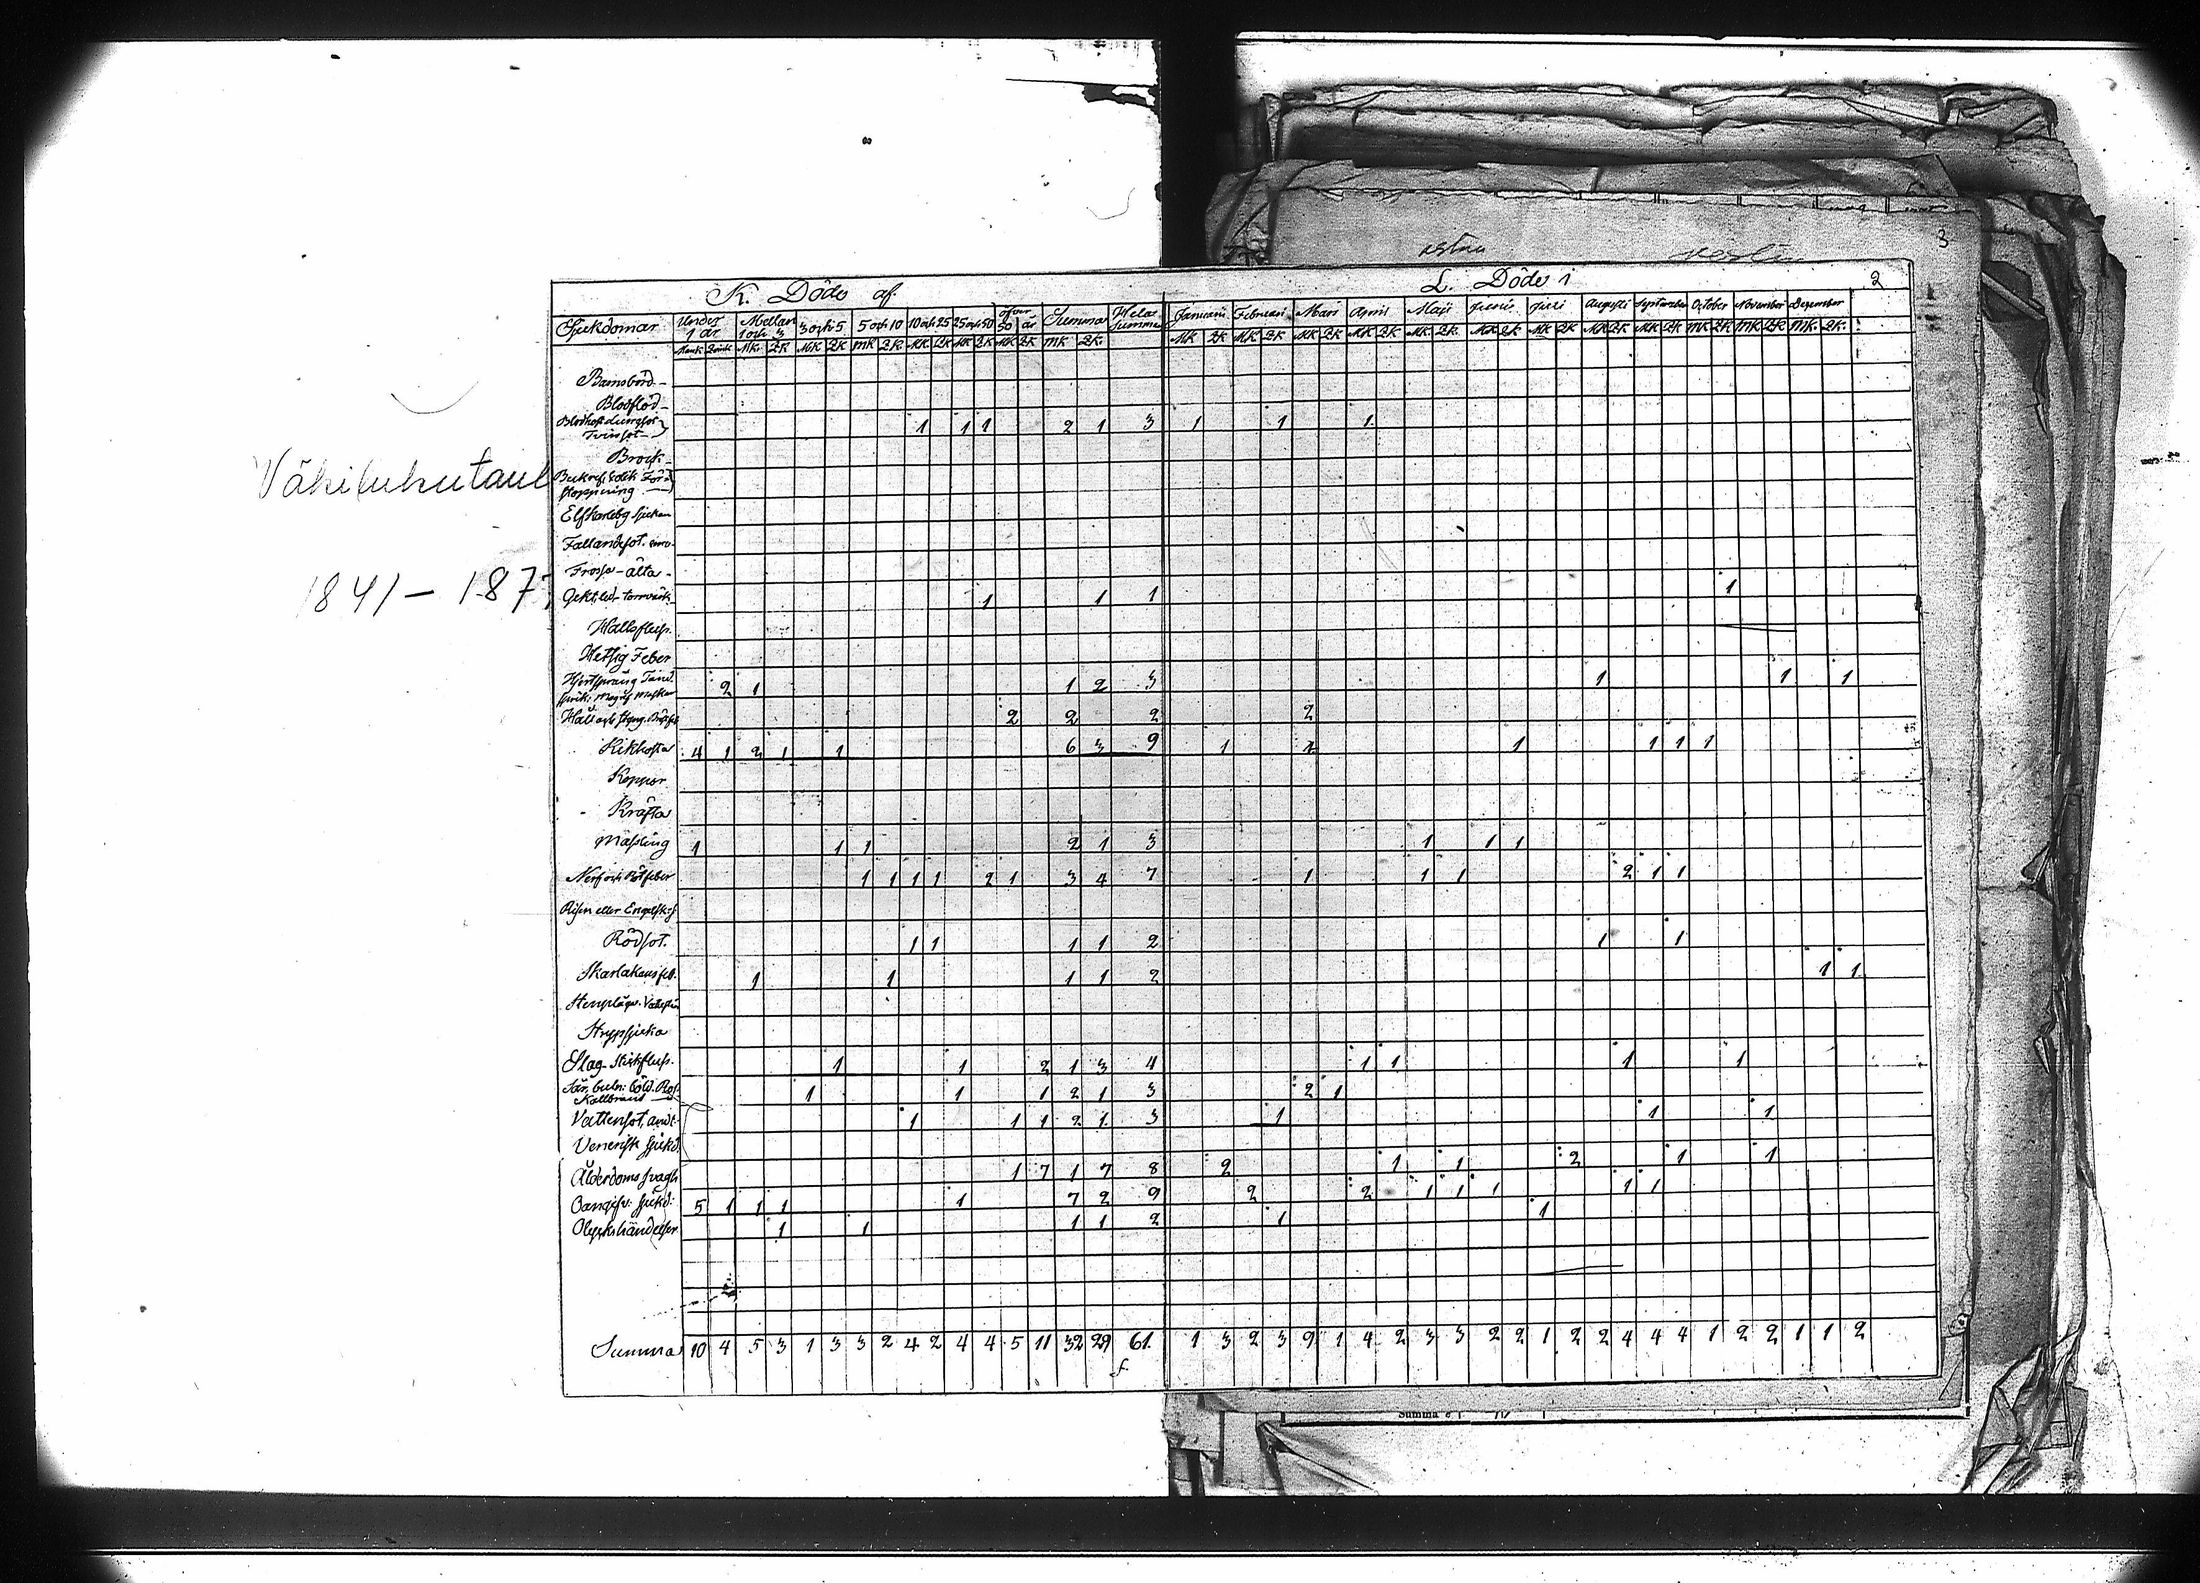 Väkilukutaul
1841 – 187
3
2
K. Döde af.
L. Döde i
Sjukdomar Under 1 år Mellan 1 och 3 3 och 5 5 och 10 10 och 25 25 och 50 öfver 50 år Summa Hela Summa Januarii Februari Mars April Maji Junii Juli Augusti September October November December
Mank Qvink Mk. QK MK QK MK QK. MK. QK MK QK MK QK MK QK. MK QK MK. QK MK QK MK QK MK. QK. MK QK MK QK MK QK MK QK MK QK MK. QK MK. QK.
Barnsbörd –
Blodflod –
Blodhosta Lungsot
Tvinsot – 1 1 1 2 1 3 1 1 1
Brock –
stoppning
Elfkarleby sjukan
Fallandesot.
Frossa – älta –
Gikt, led- torrvärk 1 1 1 1
Halsfluss.
Hetsig Feber
2 1 1 2 3 1 1 1
Håll och styng. 2 2 2 2
Kikhosta 4 1 2 1 1 6 3 9 1 1 1 1 1
Koppor
Kräfta
Mässling 1 1 1 2 1 3 1 1 1
Nerf och Rötfeber 1 1 1 1 2 1 3 4 7 1 1 1 2 1 1
Risen eller Engelsk:s
Rödsot. 1 1 1 1 2 1 1
Skarlakansfeb. 1 1 1 1 2 1 1
Strypsjuka
Slag. Stickfluss. 1 1 2 1 3 4 1 1 1 1
Kallbrand 1 1 1 2 1 3 2 1
Vattensot, 1 1 1 2 1. 3 1 1 1
Venerisk sjukd.
Ålderdoms svagh 1 7 1 7 8 2 1 1 2 1 1
Oangifv: sjukd: 5 1 1 1 1 7 2 9 2 2 1 1 1 1 1
Olyckshändelser 1 1 1 1 2 1 1
Summa 10 4 5 3 1 3 3 2 4 2 4 4 5 11 32 29 61. 1 3 2 3 9 1 4 2 3 3 2 2 1 2 2 4 4 4 1 2 2 1 1 2